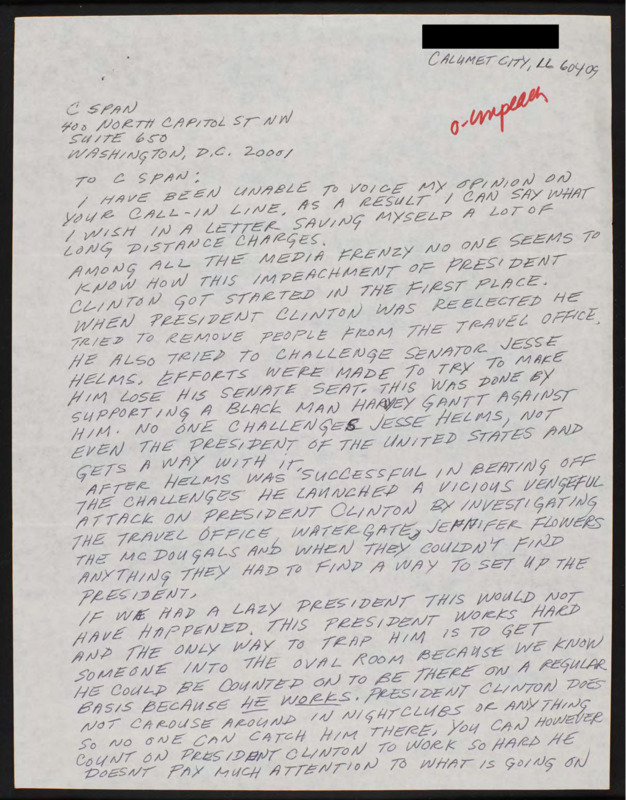 CALUMET CITY, IL 60409
o-impeach
C SPAN
400 NORTH CAPITOL ST NW
SUITE 650
WASHINGTON, D.C. 20001
TO C SPAN:
I HAVE BEEN UNABLE TO VOICE MY OPINION ON
YOUR CALL-IN LINE. AS A RESULT I CAN SAY WHAT
I WISH IN A LETTER SAVING MYSELF A LOT OF
LONG DISTANCE CHARGES.
AMONG ALL THE MEDIA FRENZY NO ONE SEEMS TO
KNOW HOW THIS IMPEACHMENT OF PRESIDENT
CLINTON GOT STARTED IN THE FIRST PLACE.
WHEN PRESIDENT CLINTON WAS REELECTED HE
TRIED TO REMOVE PEOPLE FROM THE TRAVEL OFFICE.
HE ALSO TRIED TO CHALLENGE SENATOR JESSE
HELMS. EFFORTS WERE MADE TO TRY TO MAKE
HIM LOSE HIS SENATE SEAT. THIS WAS DONE BY
SUPPORTING A BLACK MAN HARVEY GANTT AGAINST
HIM. NO ONE CHALLENGES JESSE HELMS, NOT
EVEN THE PRESIDENT OF THE UNITED STATES AND
GETS A WAY WITH IT
AFTER HELMS WAS SUCCESSFUL IN BEATING OFF
THE CHALLENGES HE LAUNCHED A VICIOUS VENGEFUL
ATTACK ON PRESIDENT CLINTON BY INVESTIGATING
THE TRAVEL OFFICE, WATERGATE, JENNIFER FLOWERS
THE MCDOUGALS AND WHEN THEY COULDN'T FIND
ANYTHING THEY HAD TO FIND A WAY TO SET UP THE
PRESIDENT.
IF WE HAD A LAZY PRESIDENT THIS WOULD NOT
HAVE HAPPENED. THIS PRESIDENT WORKS HARD
AND THE ONLY WAY TO TRAP HIM IS TO GET
SOMEONE INTO THE OVAL ROOM BECAUSE WE KNOW
HE COULD BE COUNTED ON TO BE THERE ON A REGULAR
BASIS BECAUSE HE WORKS. PRESIDENT CLINTON DOES
NOT CAROUSE AROUND IN NIGHTCLUBS OR ANYTHING
SO NO ONE CAN CATCH HIM THERE, YOU CAN HOWEVER
COUNT ON PRESIDENT CLINTON TO WORK SO HARD HE
DOESNT PAY MUCH ATTENTION TO WHAT IS GOING ON